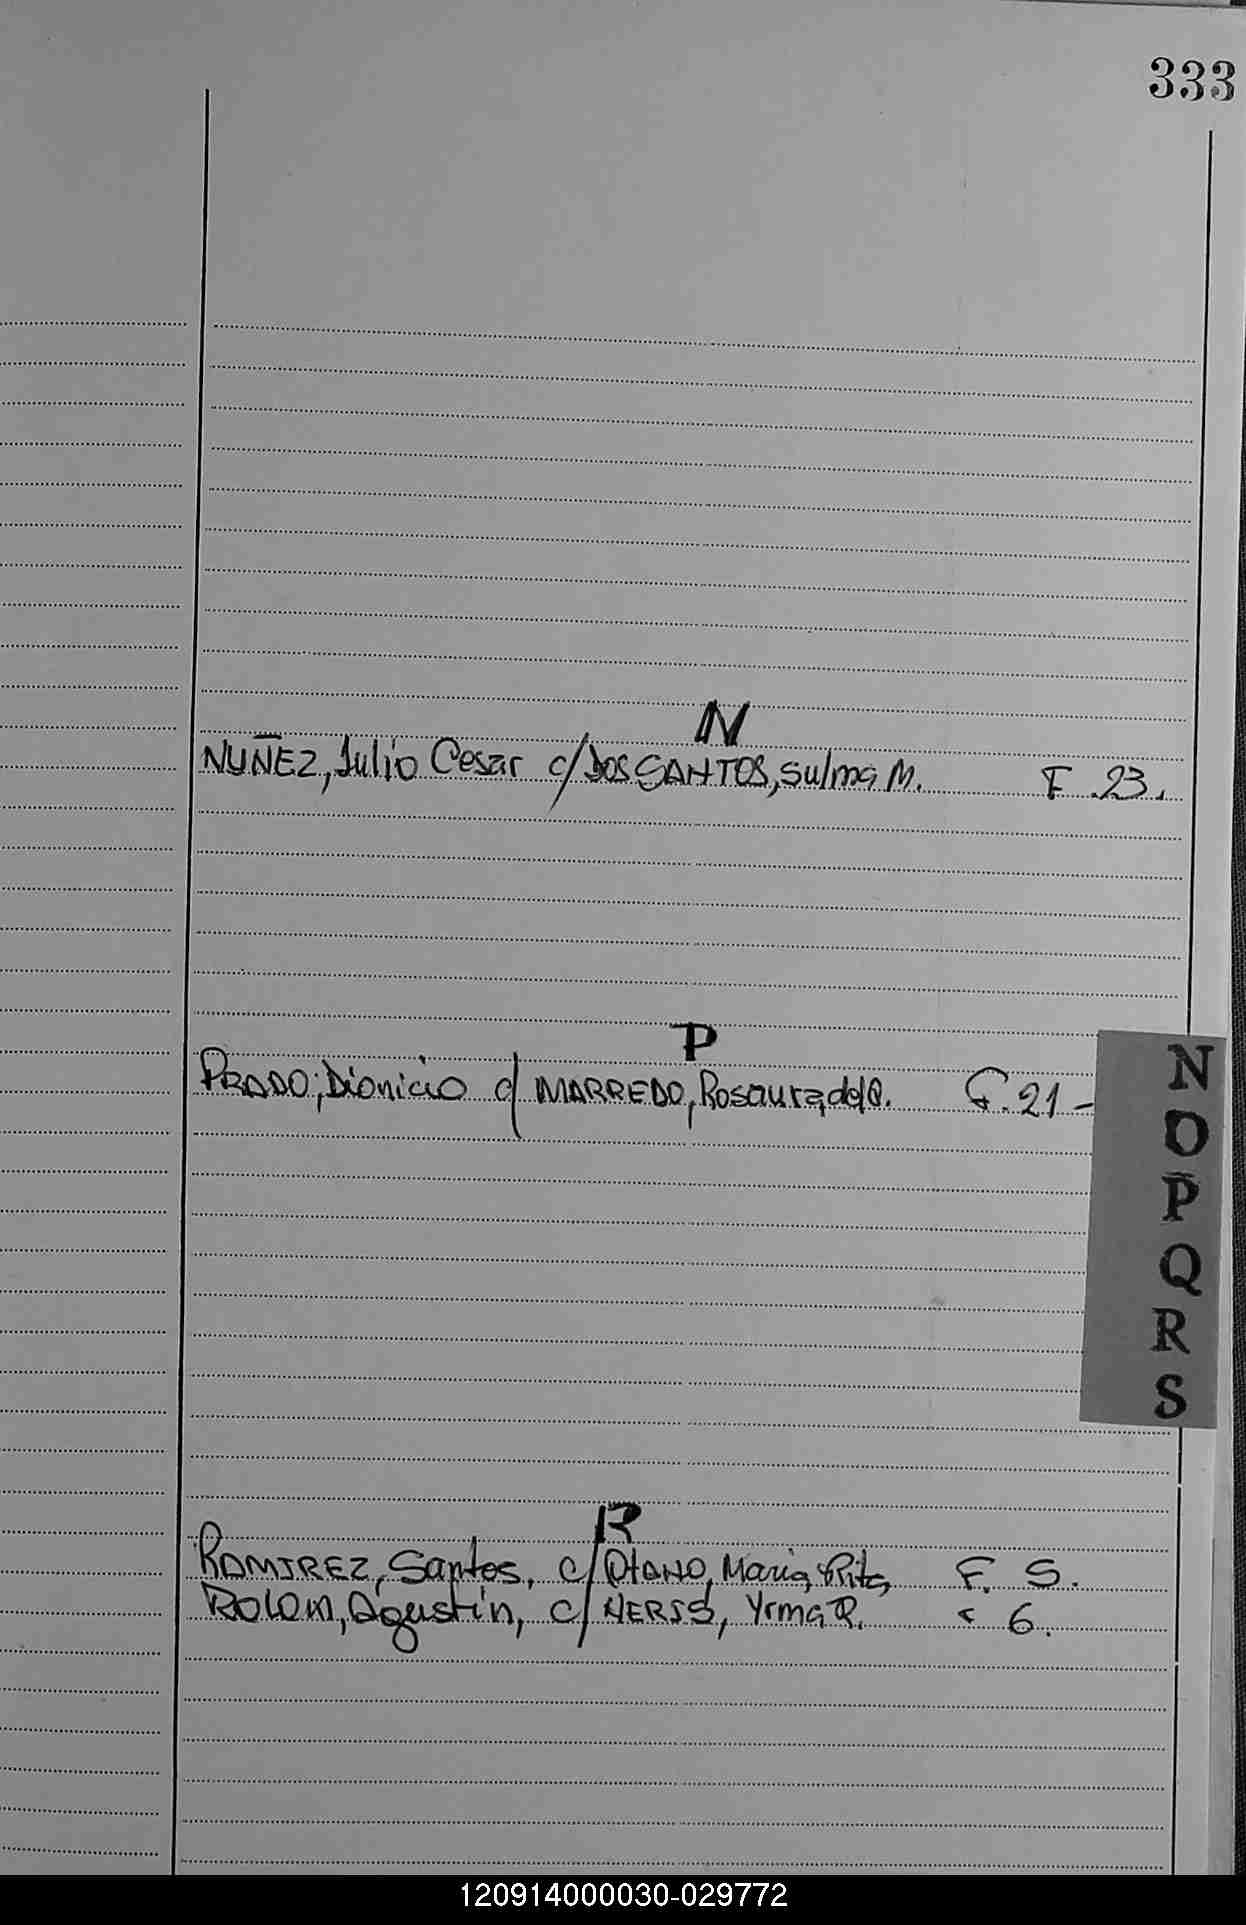 333
N
NUÑEZ, Julio Cesar c/ Dos SANTOS, Sulma M. F. 23.
P
PRADO, Dionicio c/ MARREDO, Rosaura del F. 21-
N
O
P
Q
R
S
R
RAMIREZ, Santos, c/ OTAÑO, Maria Rita F. 5.
ROLOM, Agustín, c/ Yrma R. 6.
120914000030-029772